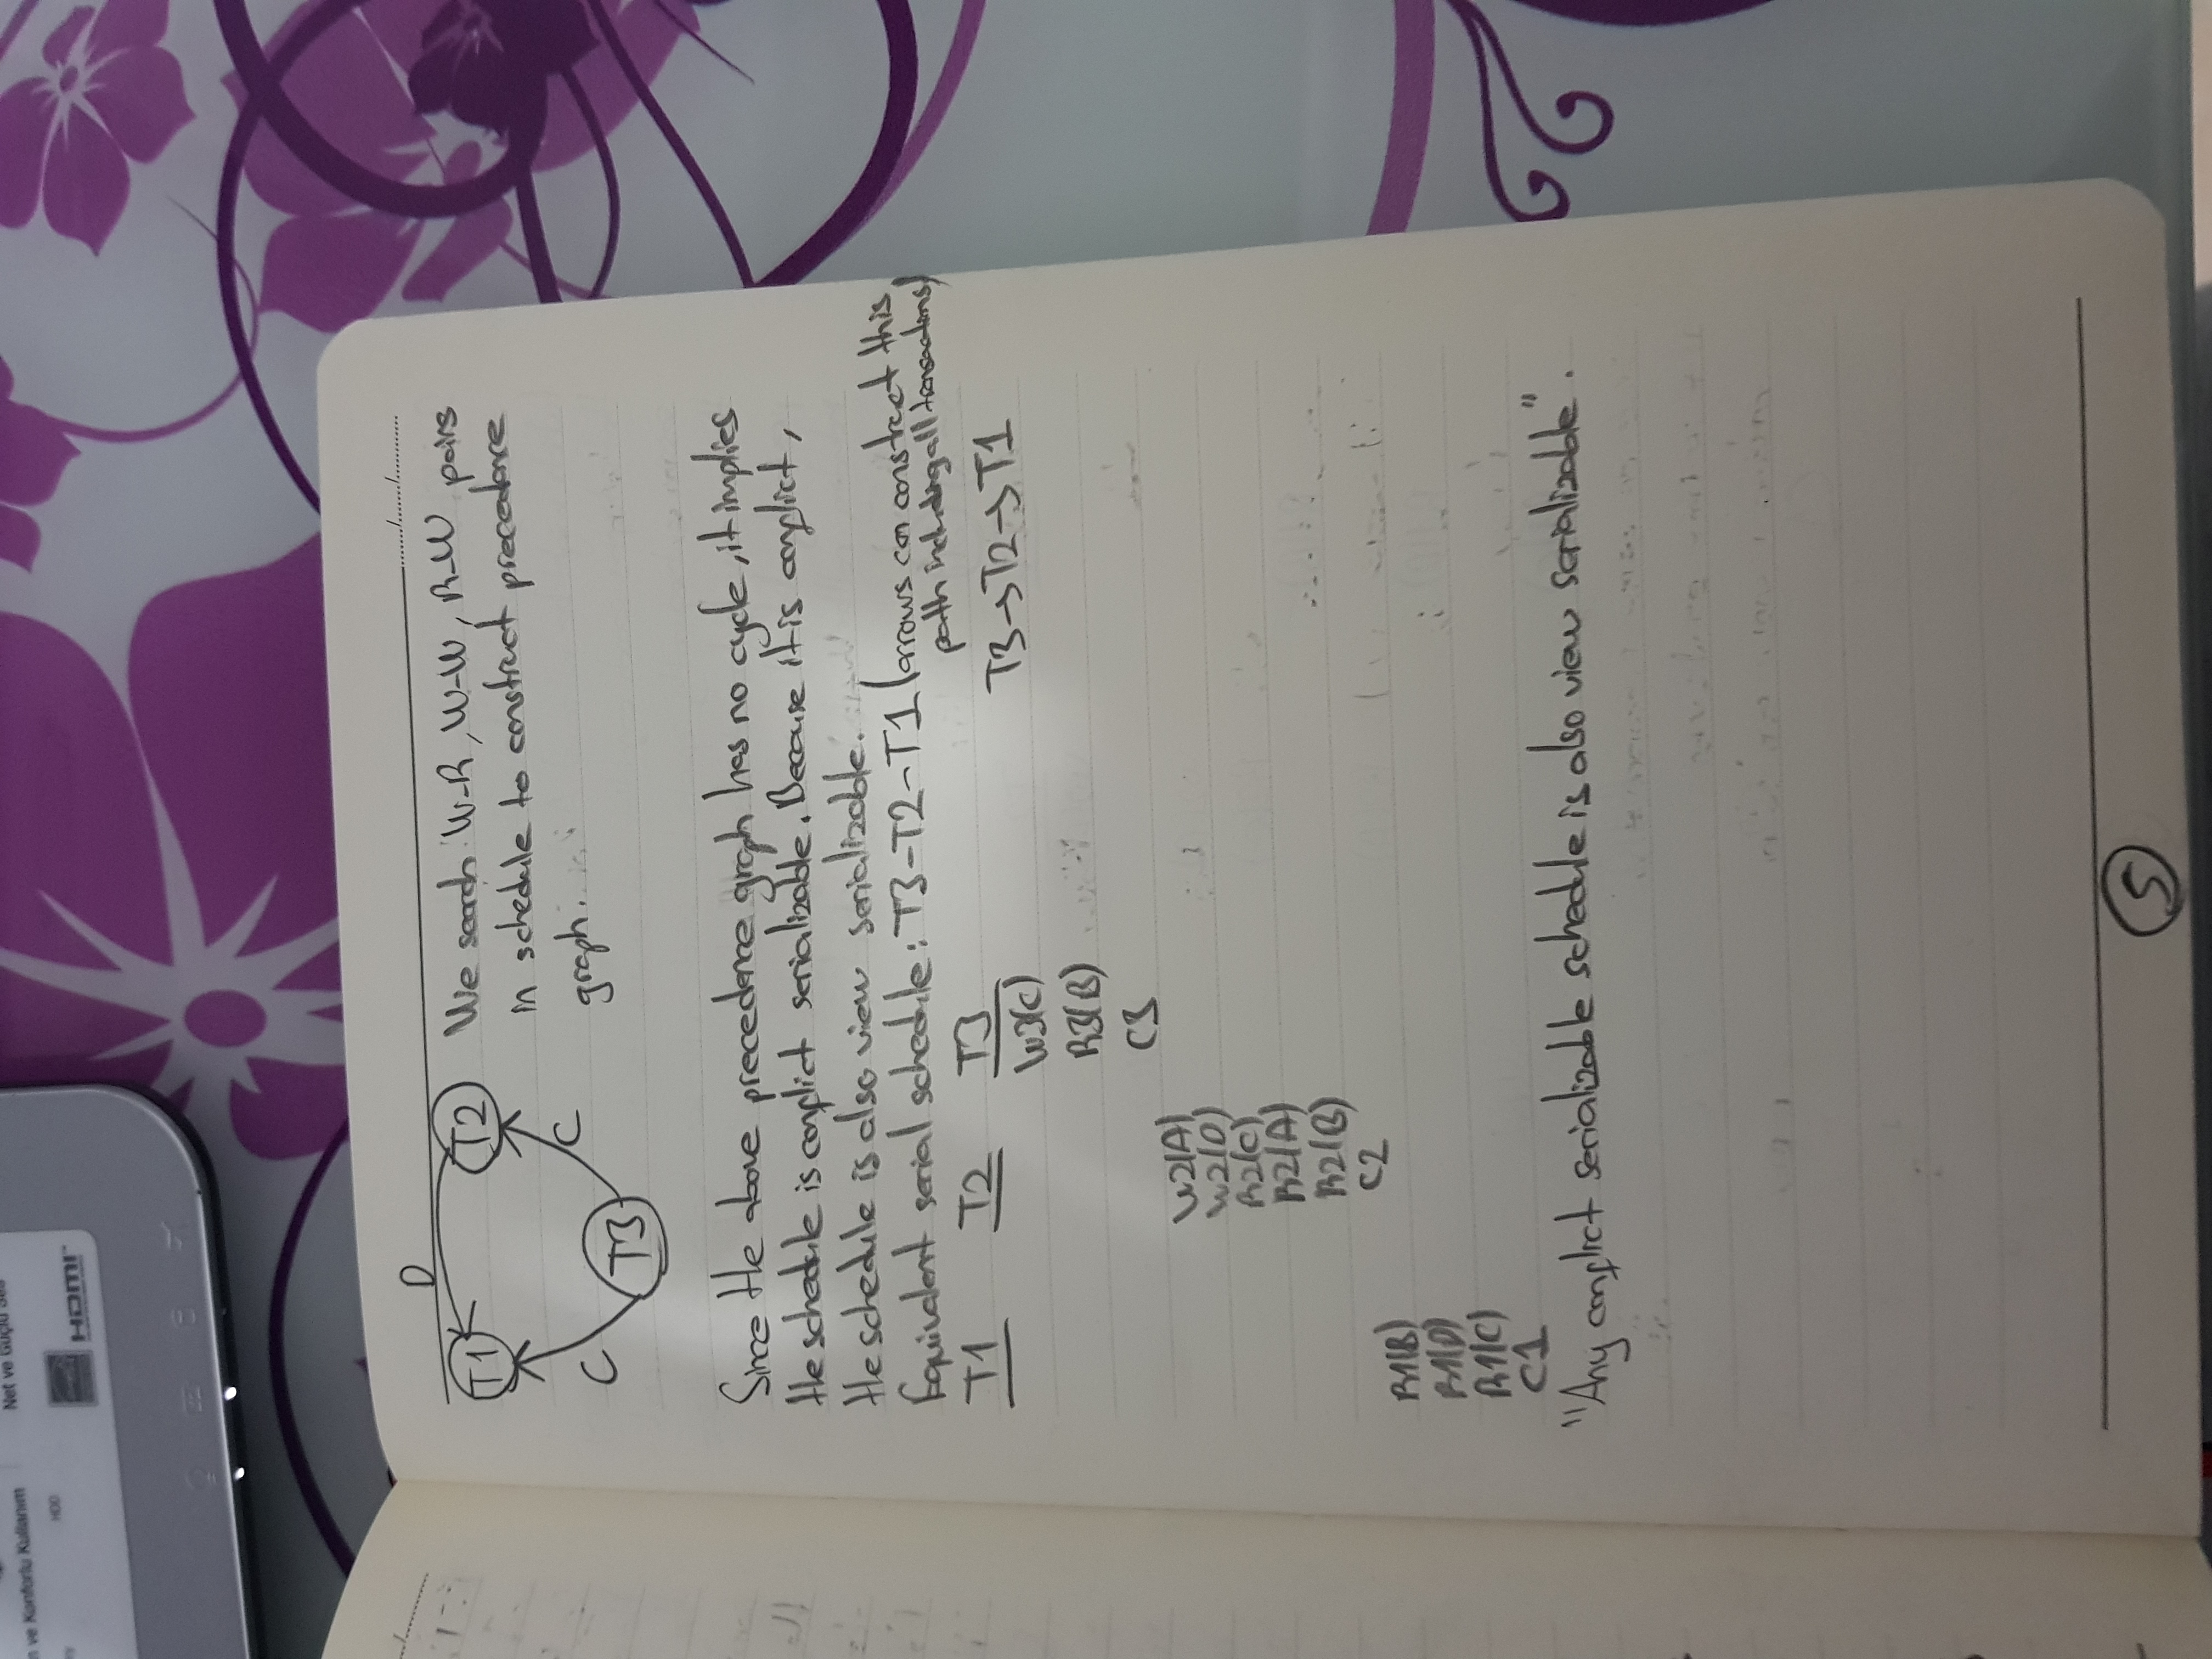 ve Konforlu Kullanım
Net ve Güçlü Ses
HDD
HDMI
D
T1
T2
C
C
T3
We search W-R, W-W, R-W pairs
in schedule to construct precedence
graph.
Since the above precedence graph has no cycle, it implies
the schedule is conflict serializable. Because it is conflict,
the schedule is also view serializable.
Equivalent serial schedule: T3-T2-T1 (arrows can construct this
path including all transactions)
T1 T2 T3
T3→T2→T1
W3(C)
R3(B)
C3
W2(A)
W2(D)
R2(C)
R2(A)
R2(B)
C2
R1(B)
R1(D)
R1(C)
C1
"Any conflict serializable schedule is also view serializable".
5